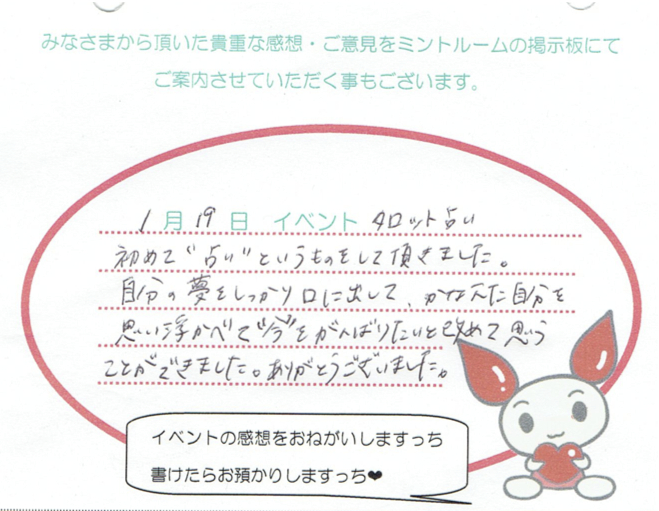 みなさまから頂いた貴重な感想・ご意見をミントルームの掲示板にて
ご案内させていただく事もございます。
1月19日 イベント タロット占い
初めて"占い"というものをして頂きました。
自分の夢をしっかり口に出して、かなえた自分を
思い浮かべて"今"をがんばりたいと改めて思う
ことができました。ありがとうございました。
イベントの感想をおねがいしますっち
書けたらお預かりしますっち❤